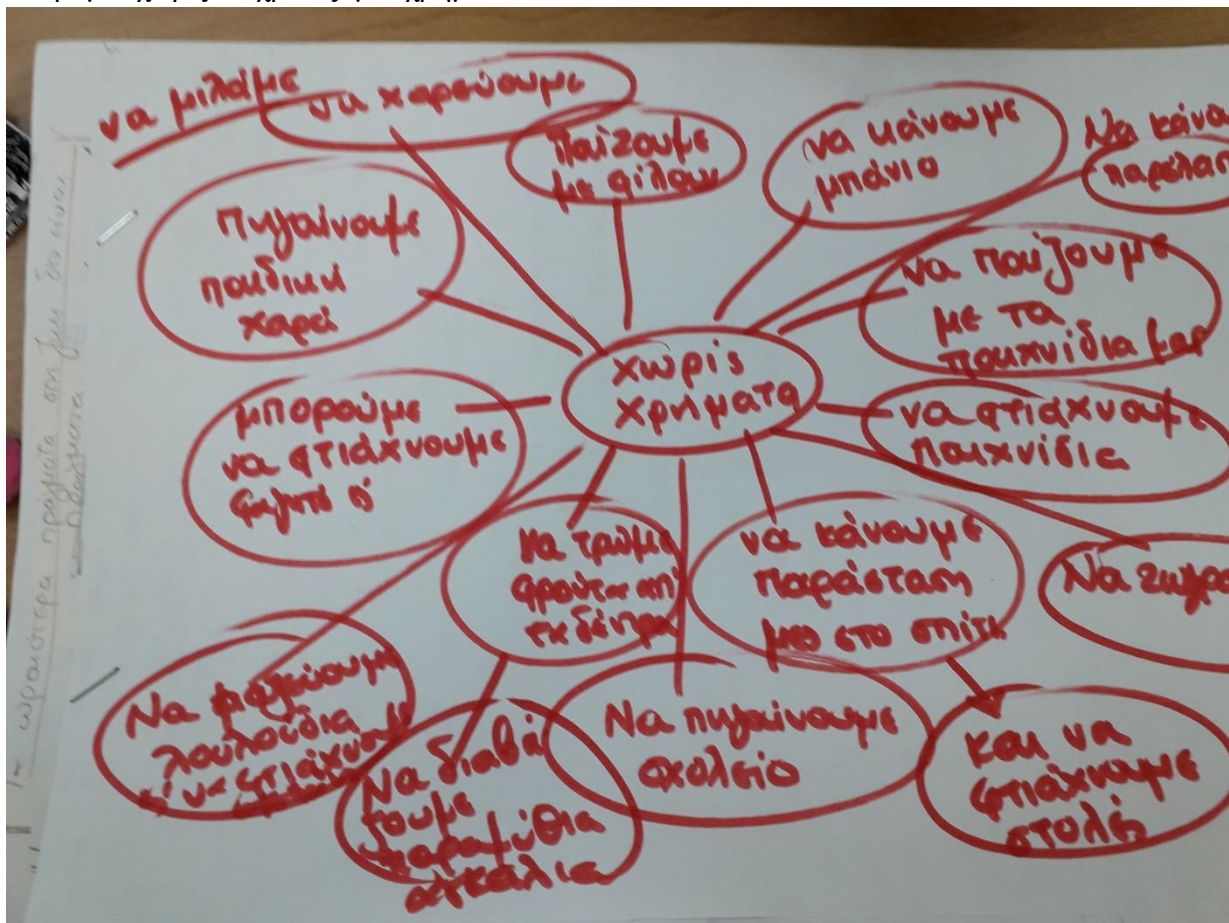 να μιλάμε
να χορεύουμε
Παίζουμε
με φίλους
να κάνουμε
μπάνιο
Να κάνου
παρέλασ
Πηγαίνουμε
παιδική
χαρά
να παίζουμε
με τα
παιχνίδια μας
χωρίς
χρήματα
μπορούμε
να φτιάχνουμε
φαγητό
να φτιάχνουμε
παιχνίδια
Να τρώμε
φρούτα
τα δέντρα
να κάνουμε
παράσταση
στο σπίτι
Να ζωγρα
Να μαζεύουμε
λουλούδια
Να διαβά
ζουμε
παραμύθια
αγκαλιά
Να πηγαίνουμε
σχολείο
και να
φτιάχνουμε
στολές
ωραιότερα πράγματα στη ζωή δεν είναι
πράγματα